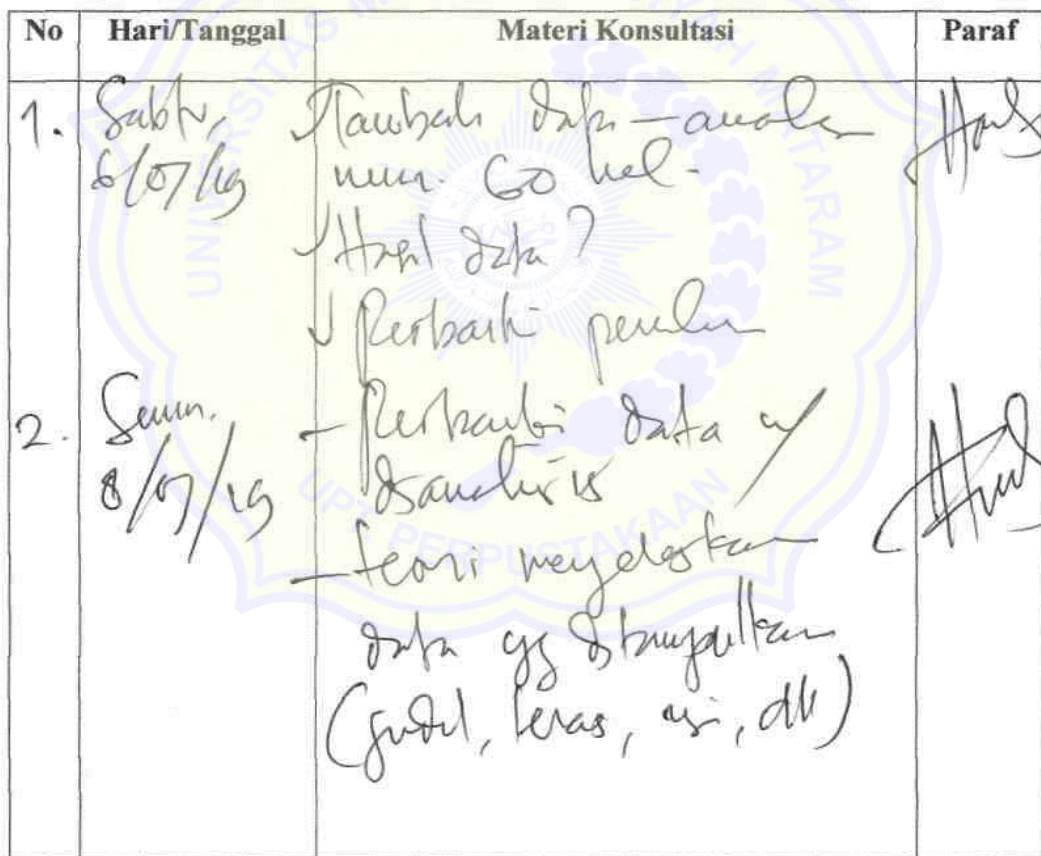 No Hari/Tanggal Materi Konsultasi Paraf
1. Sabtu, Tambah data - analisa
6/07/19 min. 60 hal.
Hasil data?
Perbaiki
2. Senin. - Perbaiki data
8/07/19 dianalisis
- teori menjelaskan
data yg ditampilkan
(judul, keras, isi, dll)
UNIVERSITAS MUHAMMADIYAH MATARAM
UPT. PERPUSTAKAAN